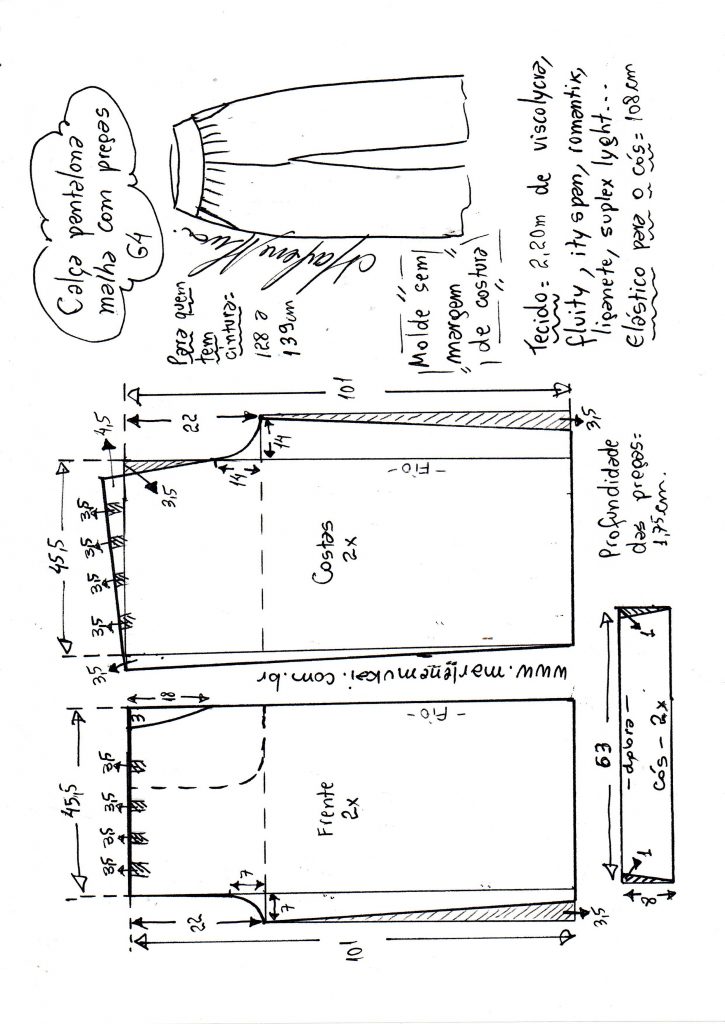 Calça pantalona
malha com pregas
64
Para quem
tem
cintura=
128 a
139cm
Molde sem
margem
de costura
Tecido= 2,20m de viscolycra,
fluity, ity span, romantix,
liganete, suplex lyght...
Elástico para o cós= 108cm
45,5
3,5
3,5
3,5
3,5
3
18
22
7
7
101
3,5
Frente
2x
-Fio-
www.marlenemukai.com.br
45,5
4,5
3,5
3,5
3,5
3,5
3,5
3,5
22
14
14
101
3,5
Costas
2x
-Fio-
63
-dobra-
cós - 2x
1
1
8
Profundidade
das pregas=
1,75cm.